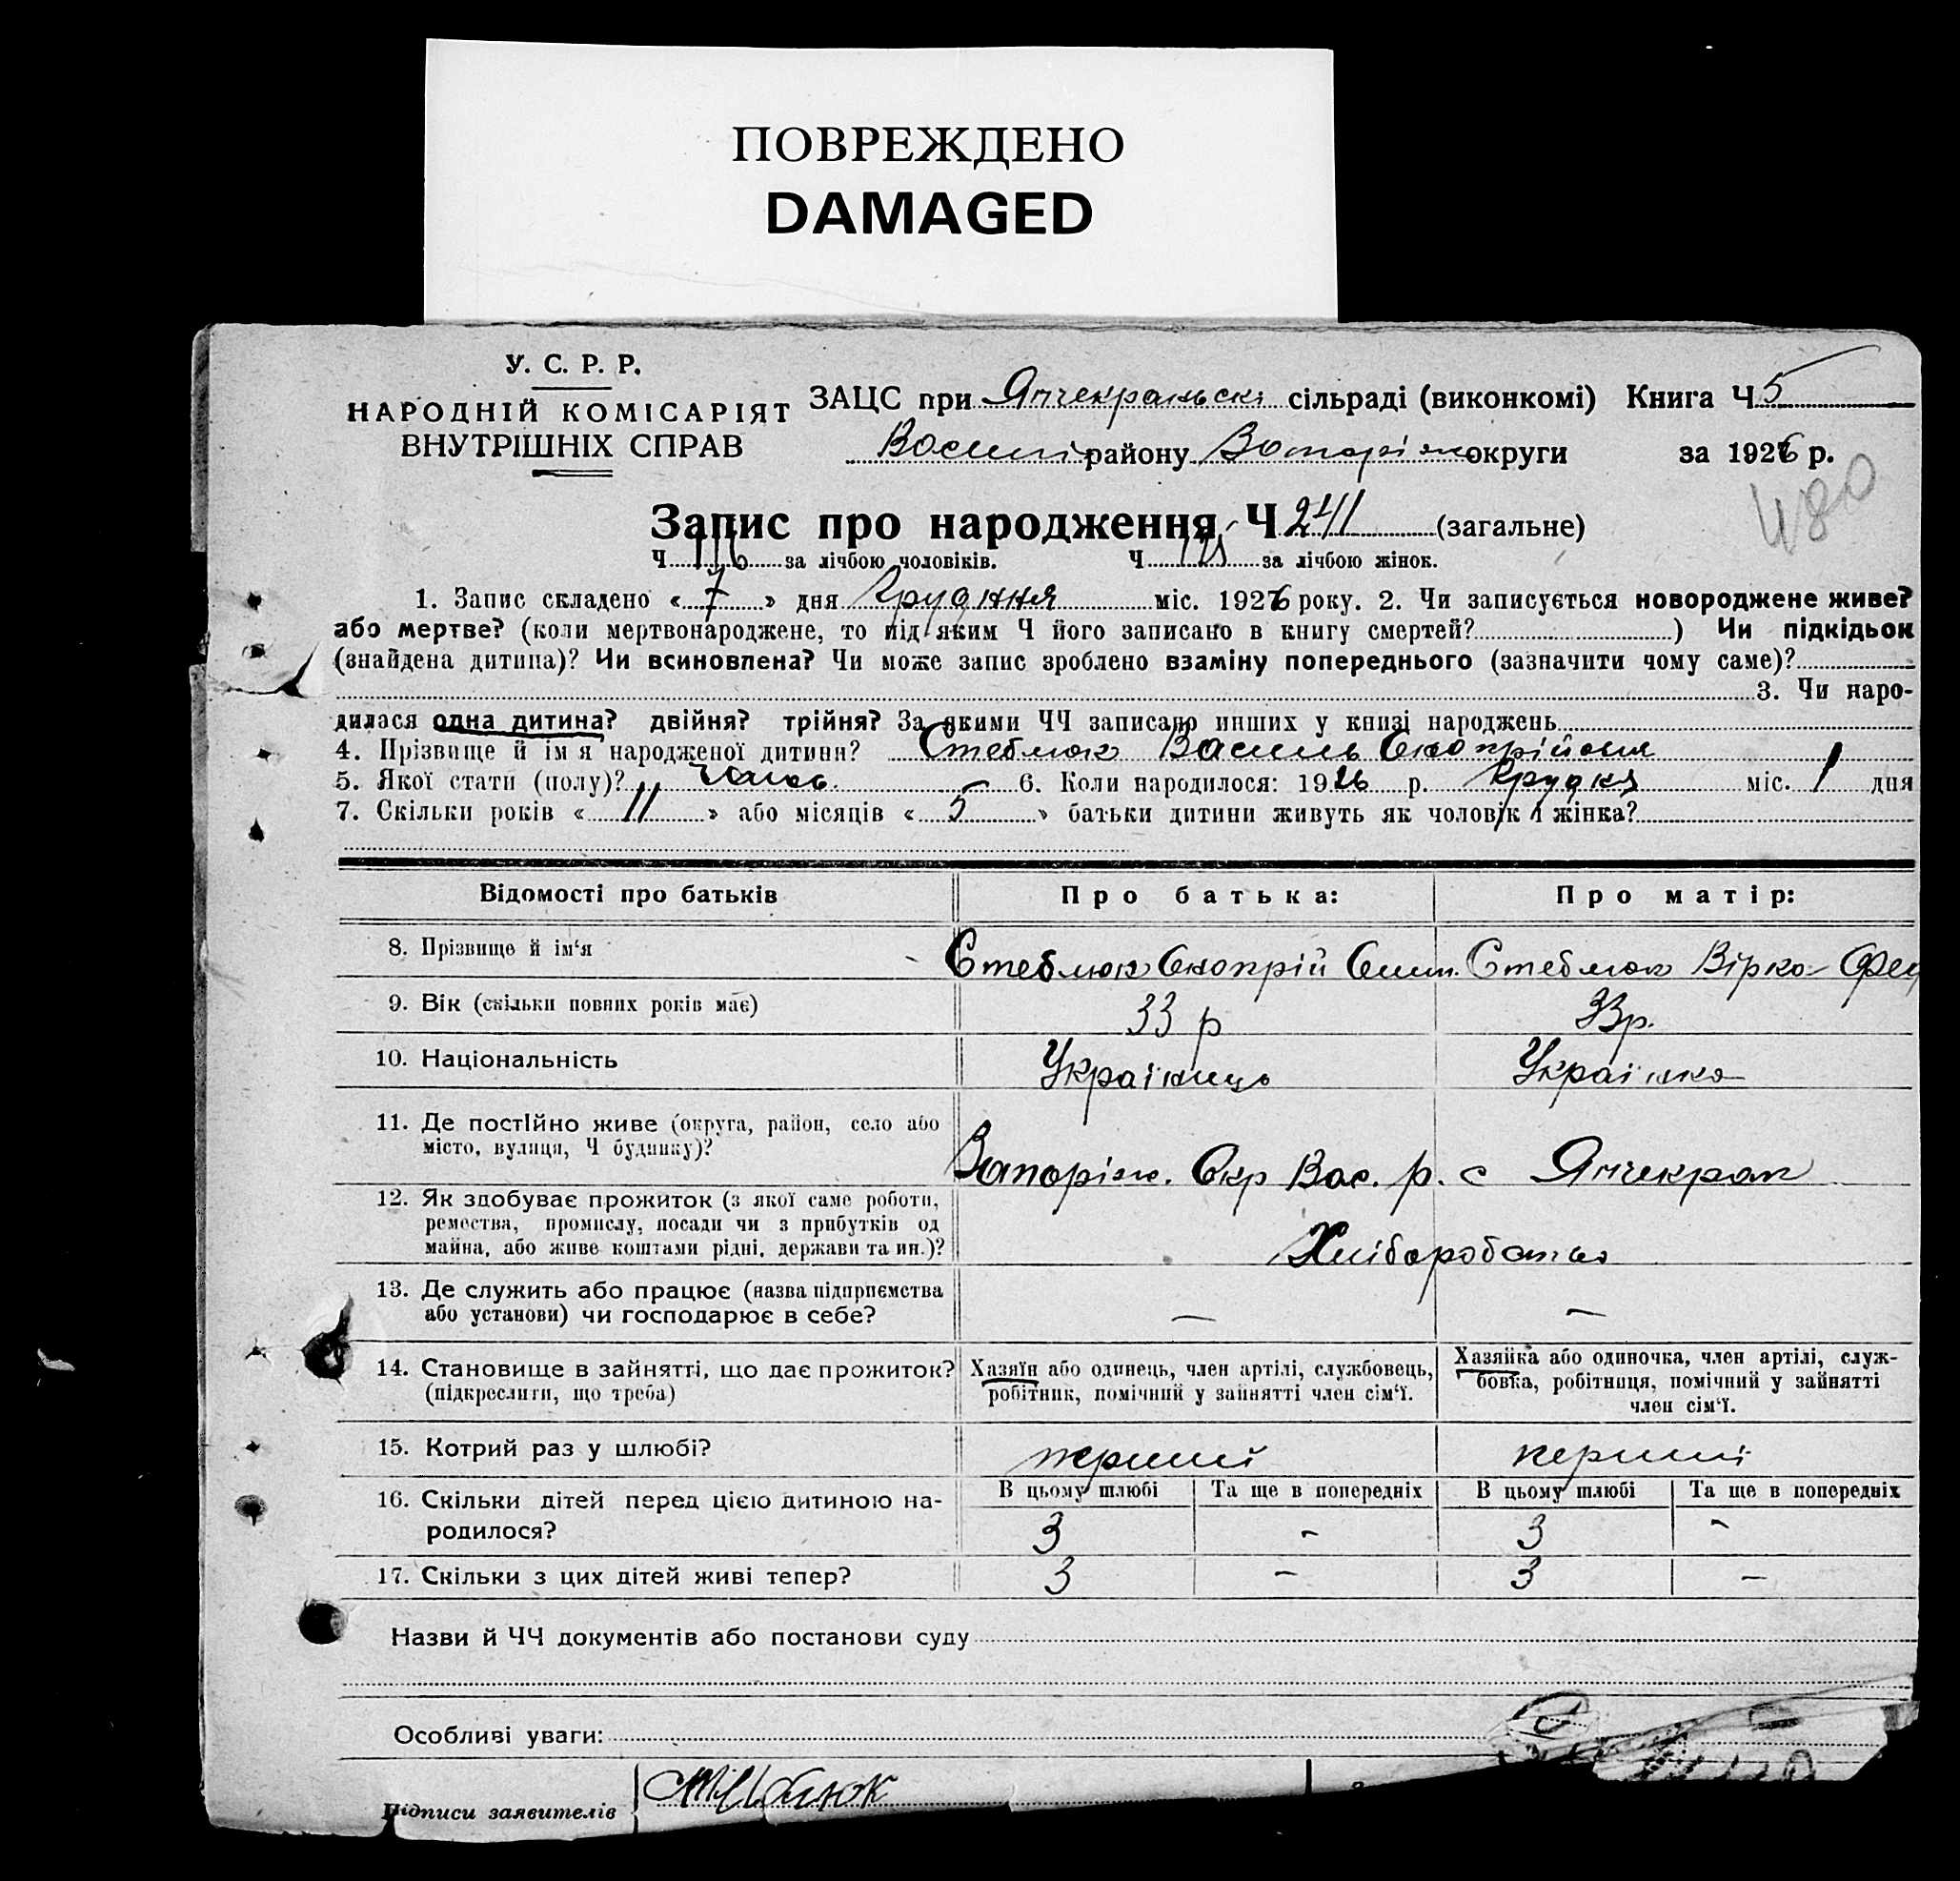 ПОВРЕЖДЕНО
DAMAGED
У. С. Р. Р.
НАРОДНІЙ КОМІСАРІЯТ
ВНУТРІШНІХ СПРАВ
ЗАЦС при Янчекраньскі сільраді (виконкомі) Книга Ч 5
району округи за 1926 р.
480
Запис про народження Ч 241 (загальне)
Ч 116 за лічбою чоловіків. Ч 125 за лічбою жінок.
1. Запис складено «7» дня Грудння міс. 1926 року. 2. Чи записується новороджене живе?
або мертве? (коли мертвонароджене, то під яким Ч його записано в книгу смертей? ) Чи підкідьок
(знайдена дитина)? Чи всиновлена? Чи може запис зроблено взаміну попереднього (зазначити чому саме)?
3. Чи наро-
дилася одна дитина? двійня? трійня? За якими ЧЧ записано инших у книзі народжень
4. Прізвище й ім'я народженої дитини? Стеблюк Василь
5. Якої стати (полу)? Чолов. 6. Коли народилося: 1926 р. Грудня міс. 1 дня
7. Скільки років «11» або місяців «5» батьки дитини живуть як чоловік і жінка?
Відомості про батьків Про батька: Про матір:
8. Прізвище й ім'я Стеблюк Стеблюк Вірка
9. Вік (скільки повних років має) 33 р 33 р.
10. Національність Українець Українка
11. Де постійно живе (округа, район, село або
місто, вулиця, Ч будинку)? Запоріж. Окр Вас. р. с Янчекрак
12. Як здобуває прожиток (з якої саме роботи,
ремества, промислу, посади чи з прибутків од
майна, або живе коштами рідні, держави та ин.)? Хліборобство
13. Де служить або працює (назва підприємства
або установи) чи господарює в себе? — —
14. Становище в зайнятті, що дає прожиток?
(підкреслити, що треба)
Хазяїн або одинець, член артілі, службовець,
робітник, помічний у зайнятті член сім'ї.
Хазяйка або одиночка, член артілі, служ-
бовка, робітниця, помічний у зайнятті
член сім'ї.
15. Котрий раз у шлюбі? перший перший
16. Скільки дітей перед цією дитиною на-
родилося?
В цьому шлюбі Та ще в попередніх В цьому шлюбі Та ще в попередніх
3 - 3 -
17. Скільки з цих дітей живі тепер? 3 - 3 -
Назви й ЧЧ документів або постанови суду
Особливі уваги:
Підписи заявителів